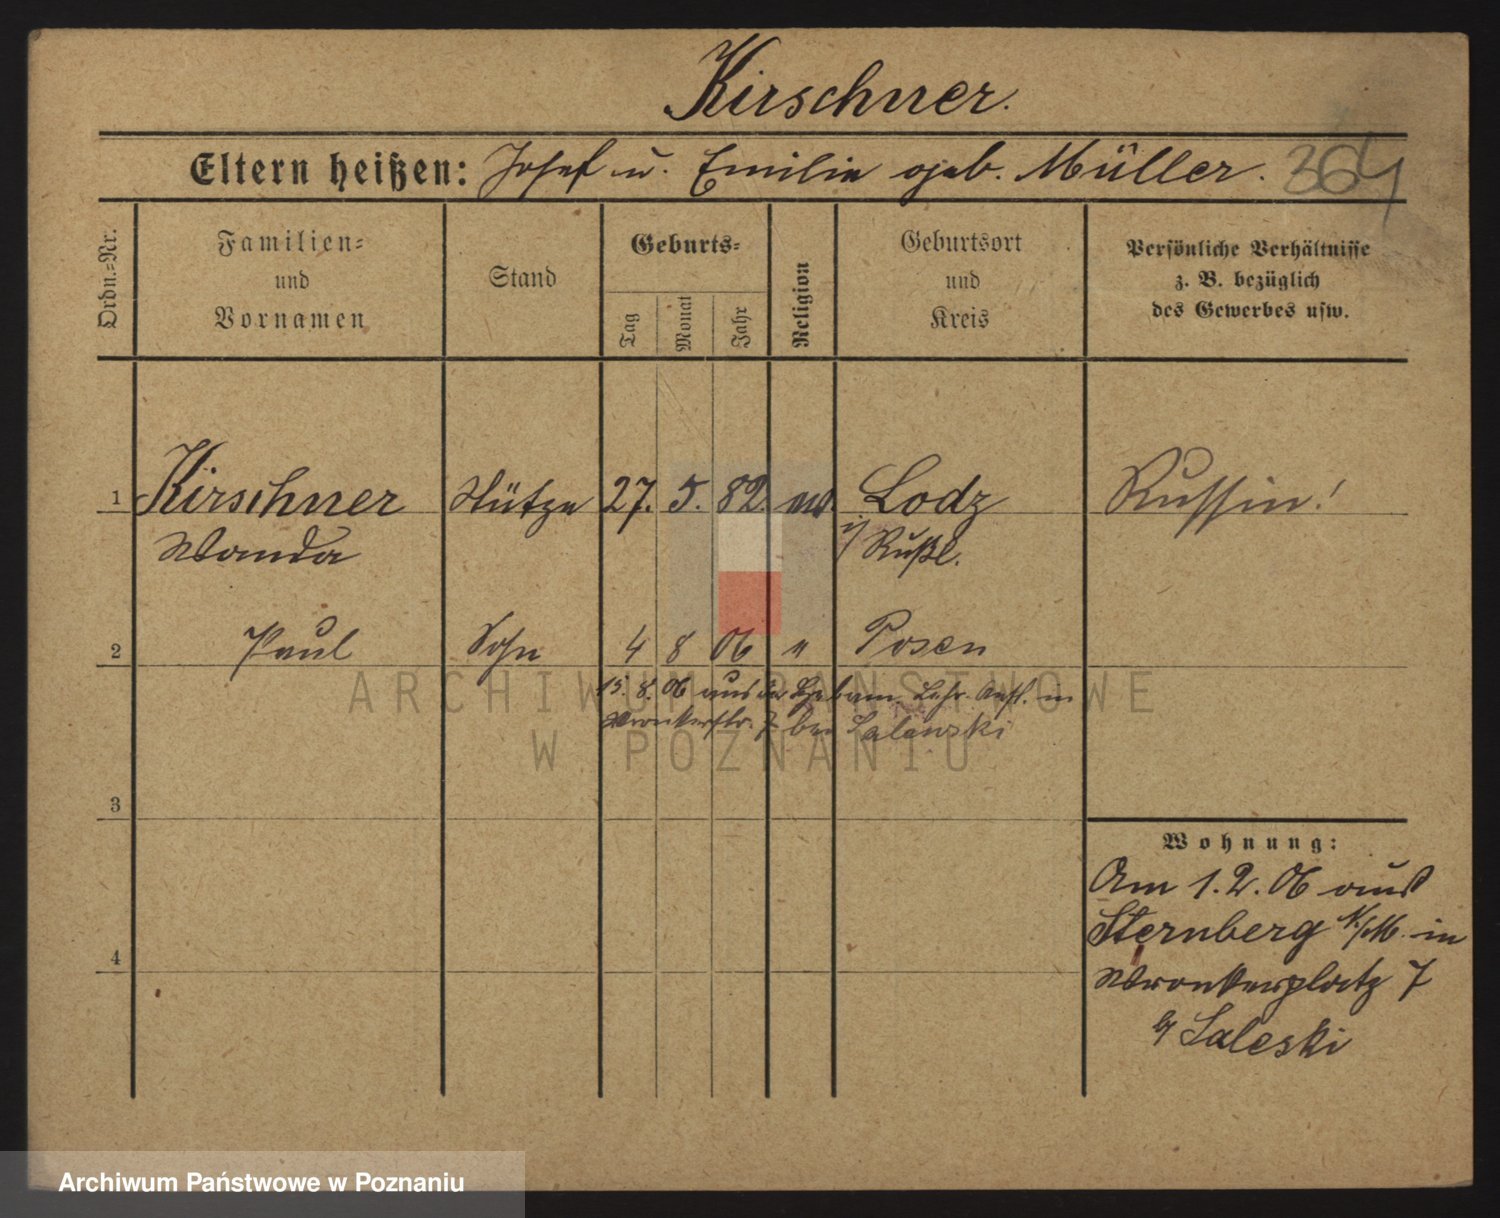 Kirschner.
Eltern heißen: Josef u. Emilie geb. Müller. 364
Ordn.-Nr.
Familien-
und
Vornamen
Stand
Geburts-
Tag
Monat
Jahr
Religion
Geburtsort
und
Kreis
Persönliche Verhältnisse
z. B. bezüglich
des Gewerbes usw.
1 Kirschner Stütze 27. 5. 82. ev. Lodz Russin!
Wanda i/ Rußl.
2 Paul Sohn 4 8 06 " Posen
15. 8. 06 aus der Hebam. Lehr. Anst. in
Wronkerstr. 7 bei Salewski
3
4
Wohnung:
Am 1. 2. 06 aus
Sternberg N/M. in
Wronkerplatz 7
b/ Saleski
ARCHIWUM PAŃSTWOWE
W POZNANIU
Archiwum Państwowe w Poznaniu